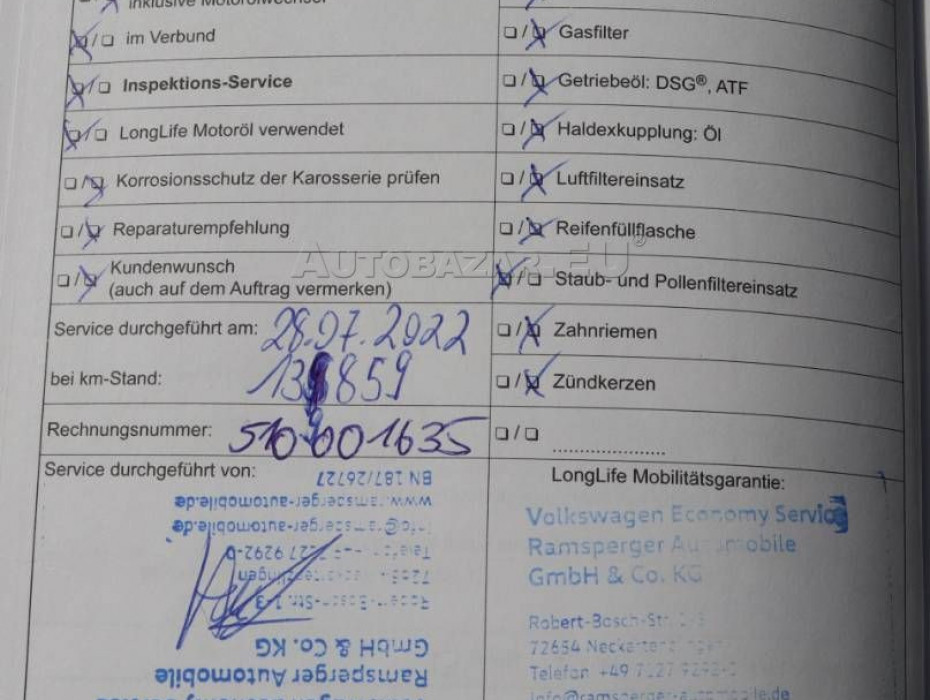 inklusive Motorölwechsel
□/□ im Verbund
□/□ Inspektions-Service
□/□ LongLife Motoröl verwendet
□/□ Korrosionsschutz der Karosserie prüfen
□/□ Reparaturempfehlung
□/□ Kundenwunsch
(auch auf dem Auftrag vermerken)
Service durchgeführt am: 28.07.2022
bei km-Stand:
Rechnungsnummer:
Service durchgeführt von:
BN 187/26727
www.ramsperger-automobile.de
info@ramsperger-automobile.de
GmbH & Co. KG
Ramsperger Automobile
□/□ Gasfilter
□/□ Getriebeöl: DSG®, ATF
□/□ Haldexkupplung: Öl
□/□ Luftfiltereinsatz
□/□ Reifenfüllflasche
□/□ Staub- und Pollenfiltereinsatz
□/□ Zahnriemen
□/□ Zündkerzen
□/□ ......................
LongLife Mobilitätsgarantie:
Volkswagen Economy Service
Ramsperger Automobile
GmbH & Co. KG
Robert-Bosch-Str.
72654
Telefon +49
info@ramsperger-automobile.de
AUTOBAZAR.EU®